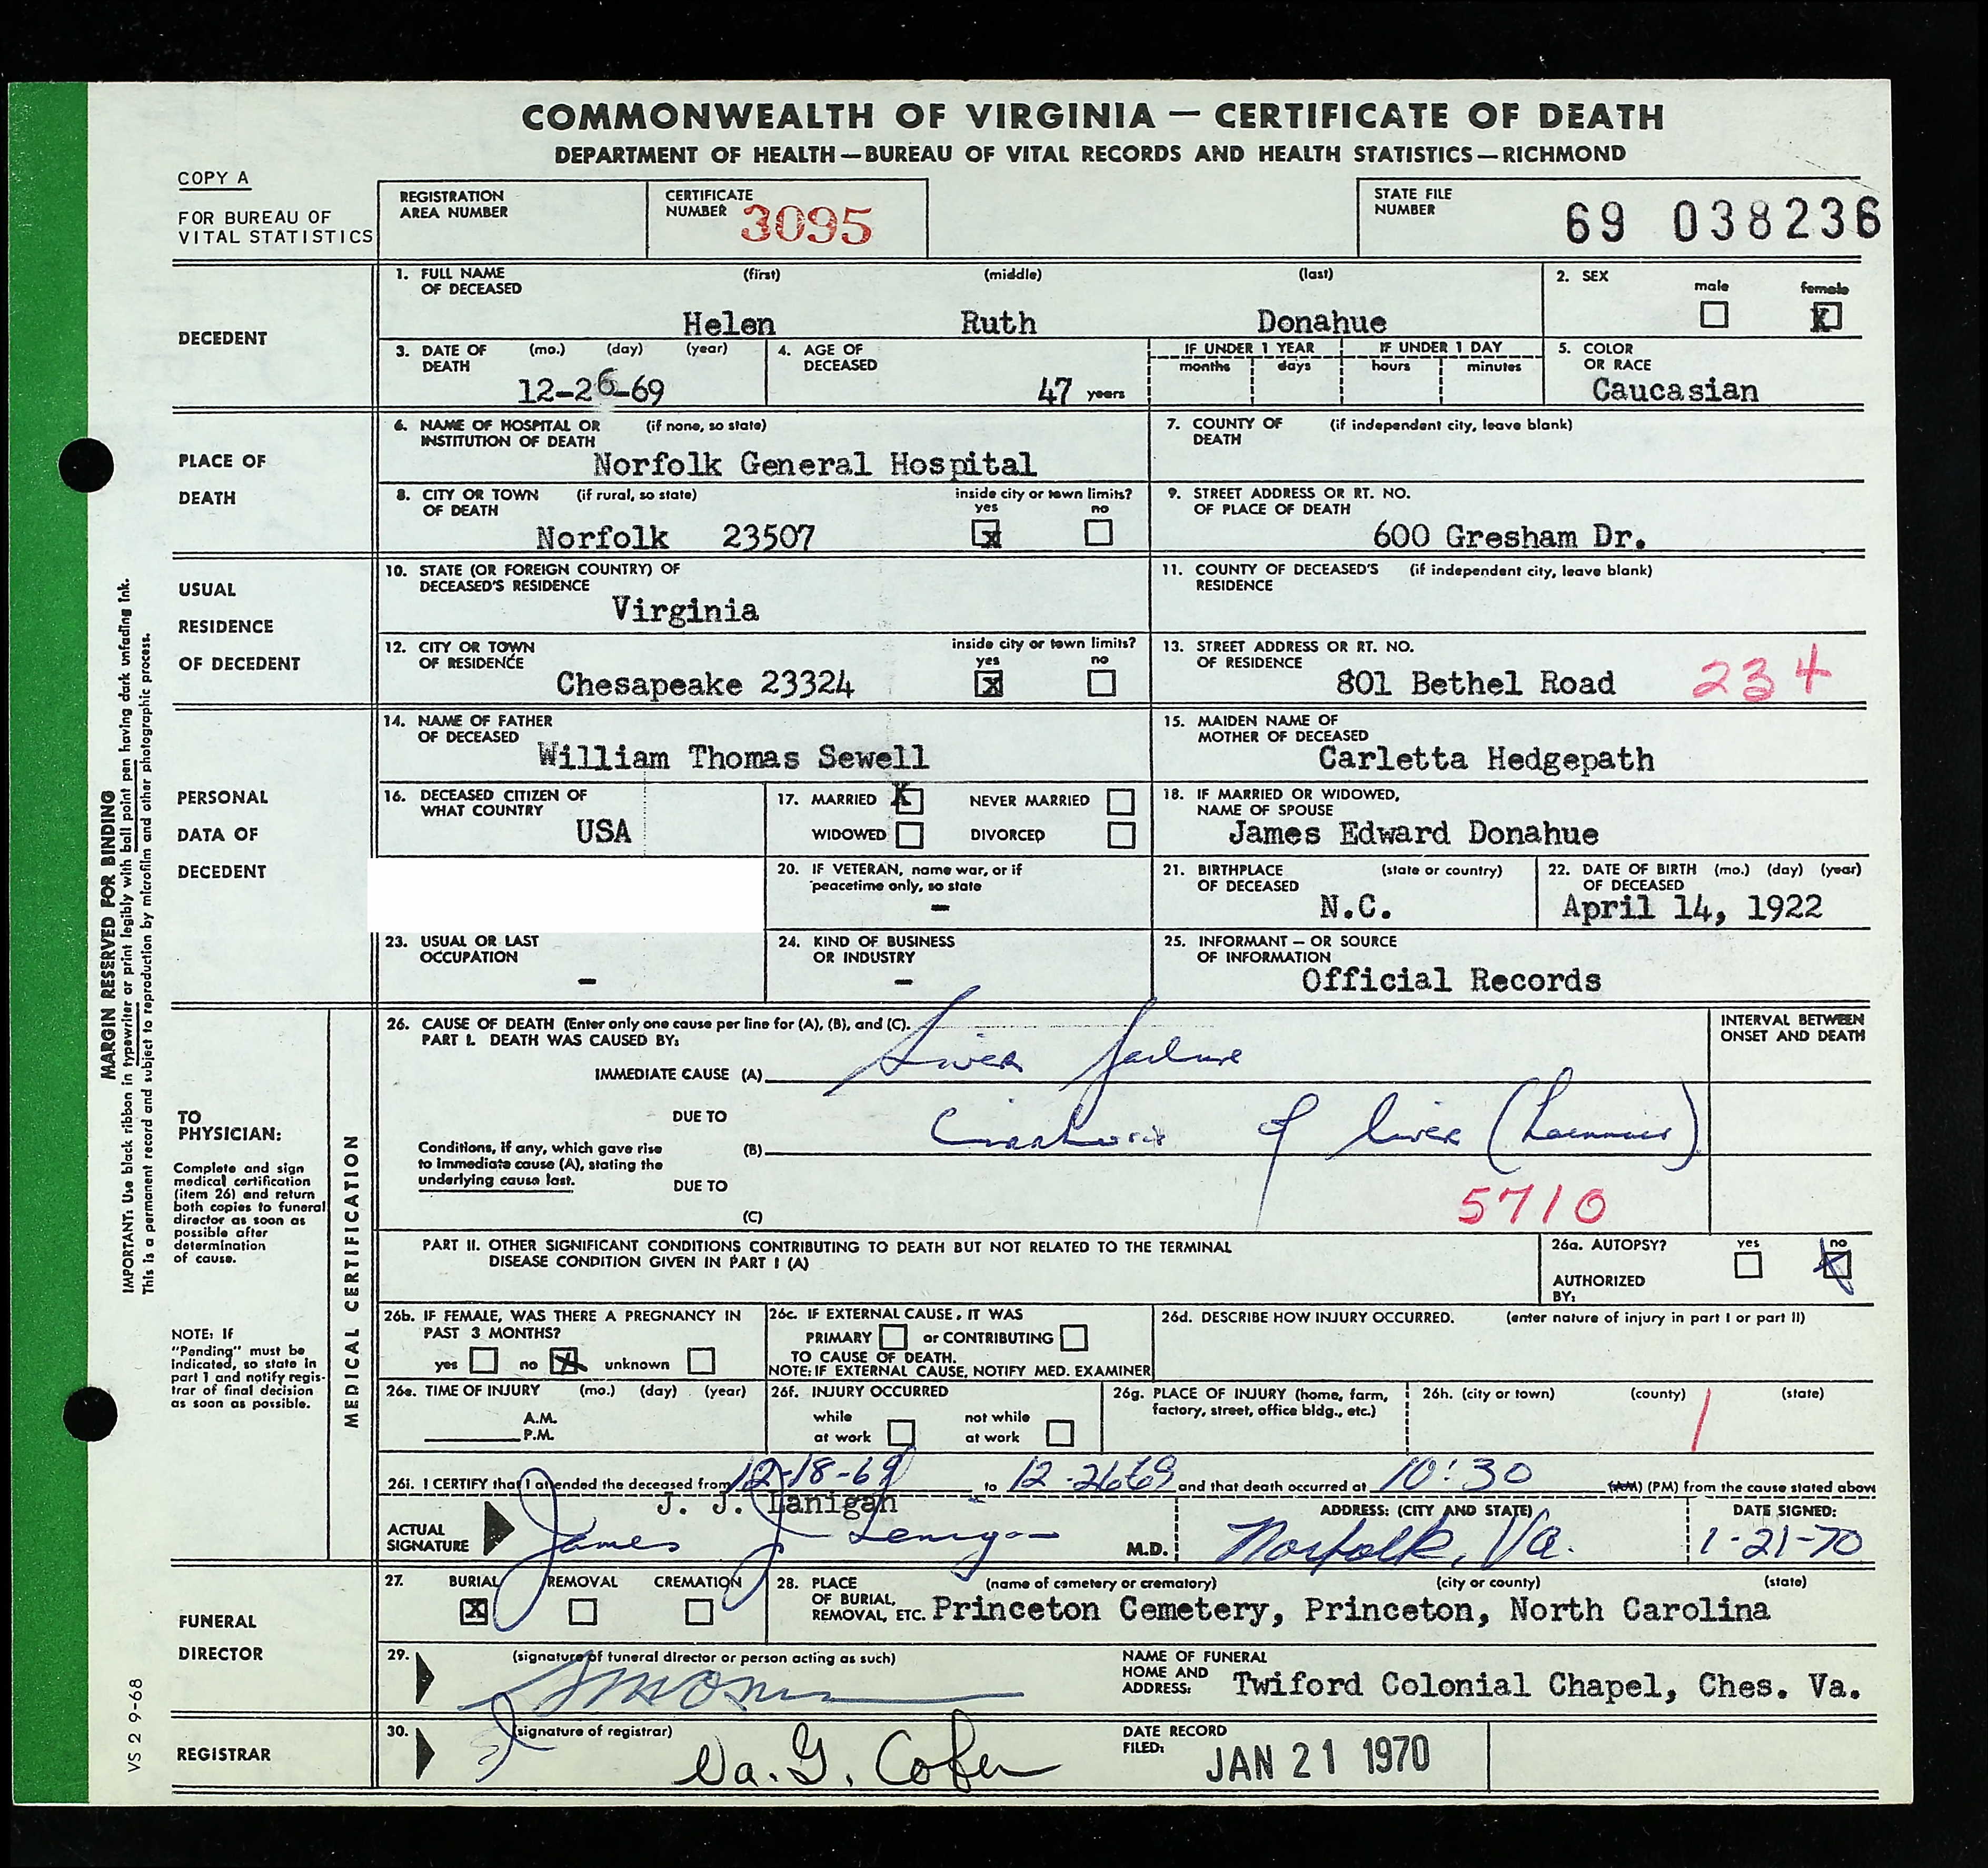 COMMONWEALTH OF VIRGINIA — CERTIFICATE OF DEATH
DEPARTMENT OF HEALTH—BUREAU OF VITAL RECORDS AND HEALTH STATISTICS—RICHMOND
COPY A
FOR BUREAU OF
VITAL STATISTICS
REGISTRATION
AREA NUMBER
CERTIFICATE
NUMBER 3095
STATE FILE
NUMBER 69 038236
DECEDENT
1. FULL NAME (first) (middle) (last)
OF DECEASED
Helen Ruth Donahue
2. SEX
male female
X
3. DATE OF (mo.) (day) (year)
DEATH
12-26-69
4. AGE OF
DECEASED
47 years
IF UNDER 1 YEAR IF UNDER 1 DAY
months days hours minutes
5. COLOR
OR RACE
Caucasian
PLACE OF
DEATH
6. NAME OF HOSPITAL OR (if none, so state)
INSTITUTION OF DEATH
Norfolk General Hospital
7. COUNTY OF (if independent city, leave blank)
DEATH
8. CITY OR TOWN (if rural, so state) inside city or town limits?
OF DEATH yes no
Norfolk 23507 x
9. STREET ADDRESS OR RT. NO.
OF PLACE OF DEATH
600 Gresham Dr.
USUAL
RESIDENCE
OF DECEDENT
10. STATE (OR FOREIGN COUNTRY) OF
DECEASED'S RESIDENCE
Virginia
11. COUNTY OF DECEASED'S (if independent city, leave blank)
RESIDENCE
12. CITY OR TOWN inside city or town limits?
OF RESIDENCE yes no
Chesapeake 23324 x
13. STREET ADDRESS OR RT. NO.
OF RESIDENCE
801 Bethel Road 234
PERSONAL
DATA OF
DECEDENT
14. NAME OF FATHER
OF DECEASED
William Thomas Sewell
15. MAIDEN NAME OF
MOTHER OF DECEASED
Carletta Hedgepath
16. DECEASED CITIZEN OF
WHAT COUNTRY
USA
17. MARRIED X NEVER MARRIED
WIDOWED DIVORCED
18. IF MARRIED OR WIDOWED,
NAME OF SPOUSE
James Edward Donahue
20. IF VETERAN, name war, or if
peacetime only, so state
-
21. BIRTHPLACE (state or country)
OF DECEASED
N.C.
22. DATE OF BIRTH (mo.) (day) (year)
OF DECEASED
April 14, 1922
23. USUAL OR LAST
OCCUPATION
-
24. KIND OF BUSINESS
OR INDUSTRY
-
25. INFORMANT — OR SOURCE
OF INFORMATION
Official Records
MARGIN RESERVED FOR BINDING
IMPORTANT: Use black ribbon in typewriter or print legibly with ball point pen having dark unfading ink.
This is a permanent record and subject to reproduction by microfilm and other photographic process.
TO
PHYSICIAN:
Complete and sign
medical certification
(item 26) and return
both copies to funeral
director as soon as
possible after
determination
of cause.
NOTE: If
"Pending" must be
indicated, so state in
part 1 and notify regis-
trar of final decision
as soon as possible.
MEDICAL CERTIFICATION
26. CAUSE OF DEATH (Enter only one cause per line for (A), (B), and (C).
PART I. DEATH WAS CAUSED BY:
INTERVAL BETWEEN
ONSET AND DEATH
IMMEDIATE CAUSE (A) Liver failure
DUE TO
Conditions, if any, which gave rise
to immediate cause (A), stating the
underlying cause last.
(B) Cirrhosis of liver (Laennecs)
DUE TO
5710
(C)
PART II. OTHER SIGNIFICANT CONDITIONS CONTRIBUTING TO DEATH BUT NOT RELATED TO THE TERMINAL
DISEASE CONDITION GIVEN IN PART I (A)
26a. AUTOPSY? yes no
X
AUTHORIZED
BY:
26b. IF FEMALE, WAS THERE A PREGNANCY IN
PAST 3 MONTHS?
yes no X unknown
26c. IF EXTERNAL CAUSE, IT WAS
PRIMARY or CONTRIBUTING
TO CAUSE OF DEATH.
NOTE: IF EXTERNAL CAUSE, NOTIFY MED. EXAMINER
26d. DESCRIBE HOW INJURY OCCURRED. (enter nature of injury in part I or part II)
26e. TIME OF INJURY (mo.) (day) (year)
A.M.
P.M.
26f. INJURY OCCURRED
while not while
at work at work
26g. PLACE OF INJURY (home, farm,
factory, street, office bldg., etc.)
26h. (city or town) (county) (state)
1
26i. I CERTIFY that I attended the deceased from 12-18-69 to 12-26-69 and that death occurred at 10:30 (AM) (PM) from the cause stated above
J. J. Lanigan
ACTUAL
SIGNATURE James J Lanigan M.D.
ADDRESS: (CITY AND STATE)
Norfolk, Va.
DATE SIGNED:
1-21-70
FUNERAL
DIRECTOR
27. BURIAL REMOVAL CREMATION
X
28. PLACE (name of cemetery or crematory) (city or county) (state)
OF BURIAL,
REMOVAL, ETC. Princeton Cemetery, Princeton, North Carolina
29. (signature of funeral director or person acting as such)
NAME OF FUNERAL
HOME AND
ADDRESS: Twiford Colonial Chapel, Ches. Va.
REGISTRAR
30. (signature of registrar)
DATE RECORD
FILED: JAN 21 1970
VS 2 9-68